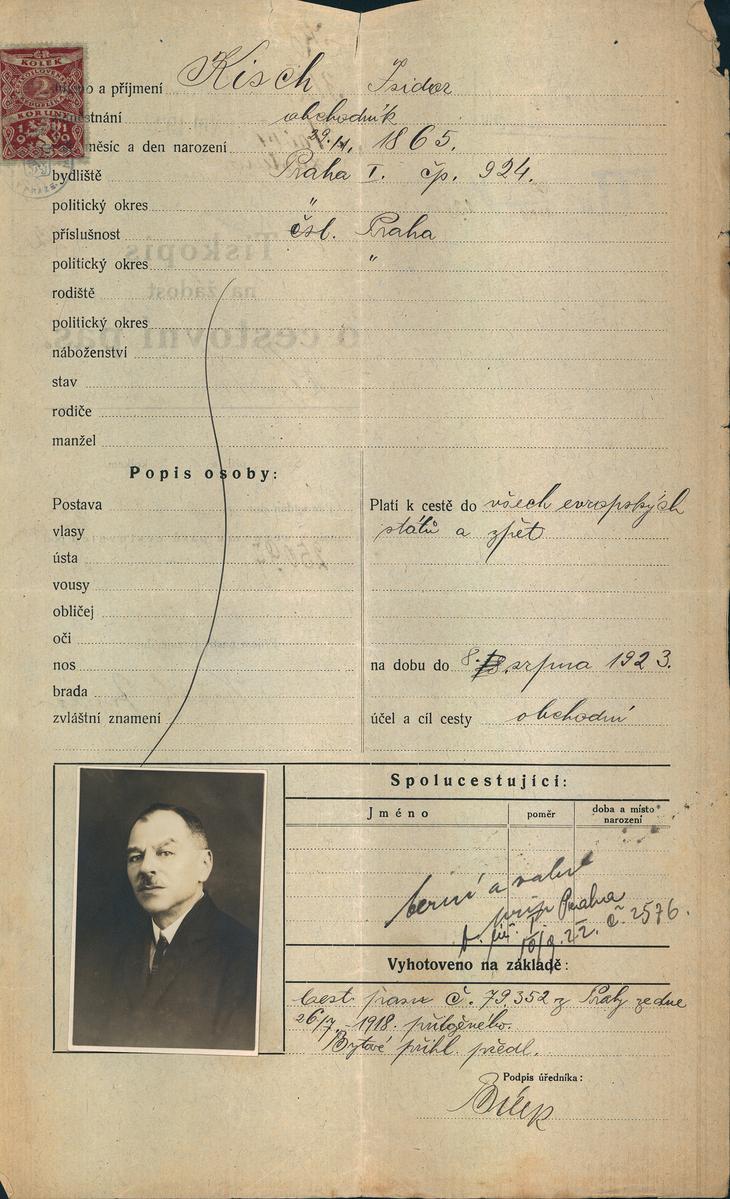 ČR
KOLEK
2
KORUNY
1919
a příjmení Kisch Isidor
obchodník
měsíc a den narození 29. 11. 1865.
bydliště Praha I. čp. 924.
politický okres "
příslušnost čsl. Praha
politický okres "
rodiště
politický okres
náboženství
stav
rodiče
manžel
Popis osoby:
Postava
vlasy
ústa
vousy
obličej
oči
nos
brada
zvláštní znamení
Platí k cestě do všech evropských
států a zpět
na dobu do 8. srpna 1923.
účel a cíl cesty obchodní
Spolucestující:
Jméno poměr doba a místo narození
berní a
Praha
č. 2576.
Vyhotoveno na základě:
Cest. pasu č. 79.352 z Prahy ze dne
26/7 1918. přiloženého.
Bytové přihl. předl.
Podpis úředníka: